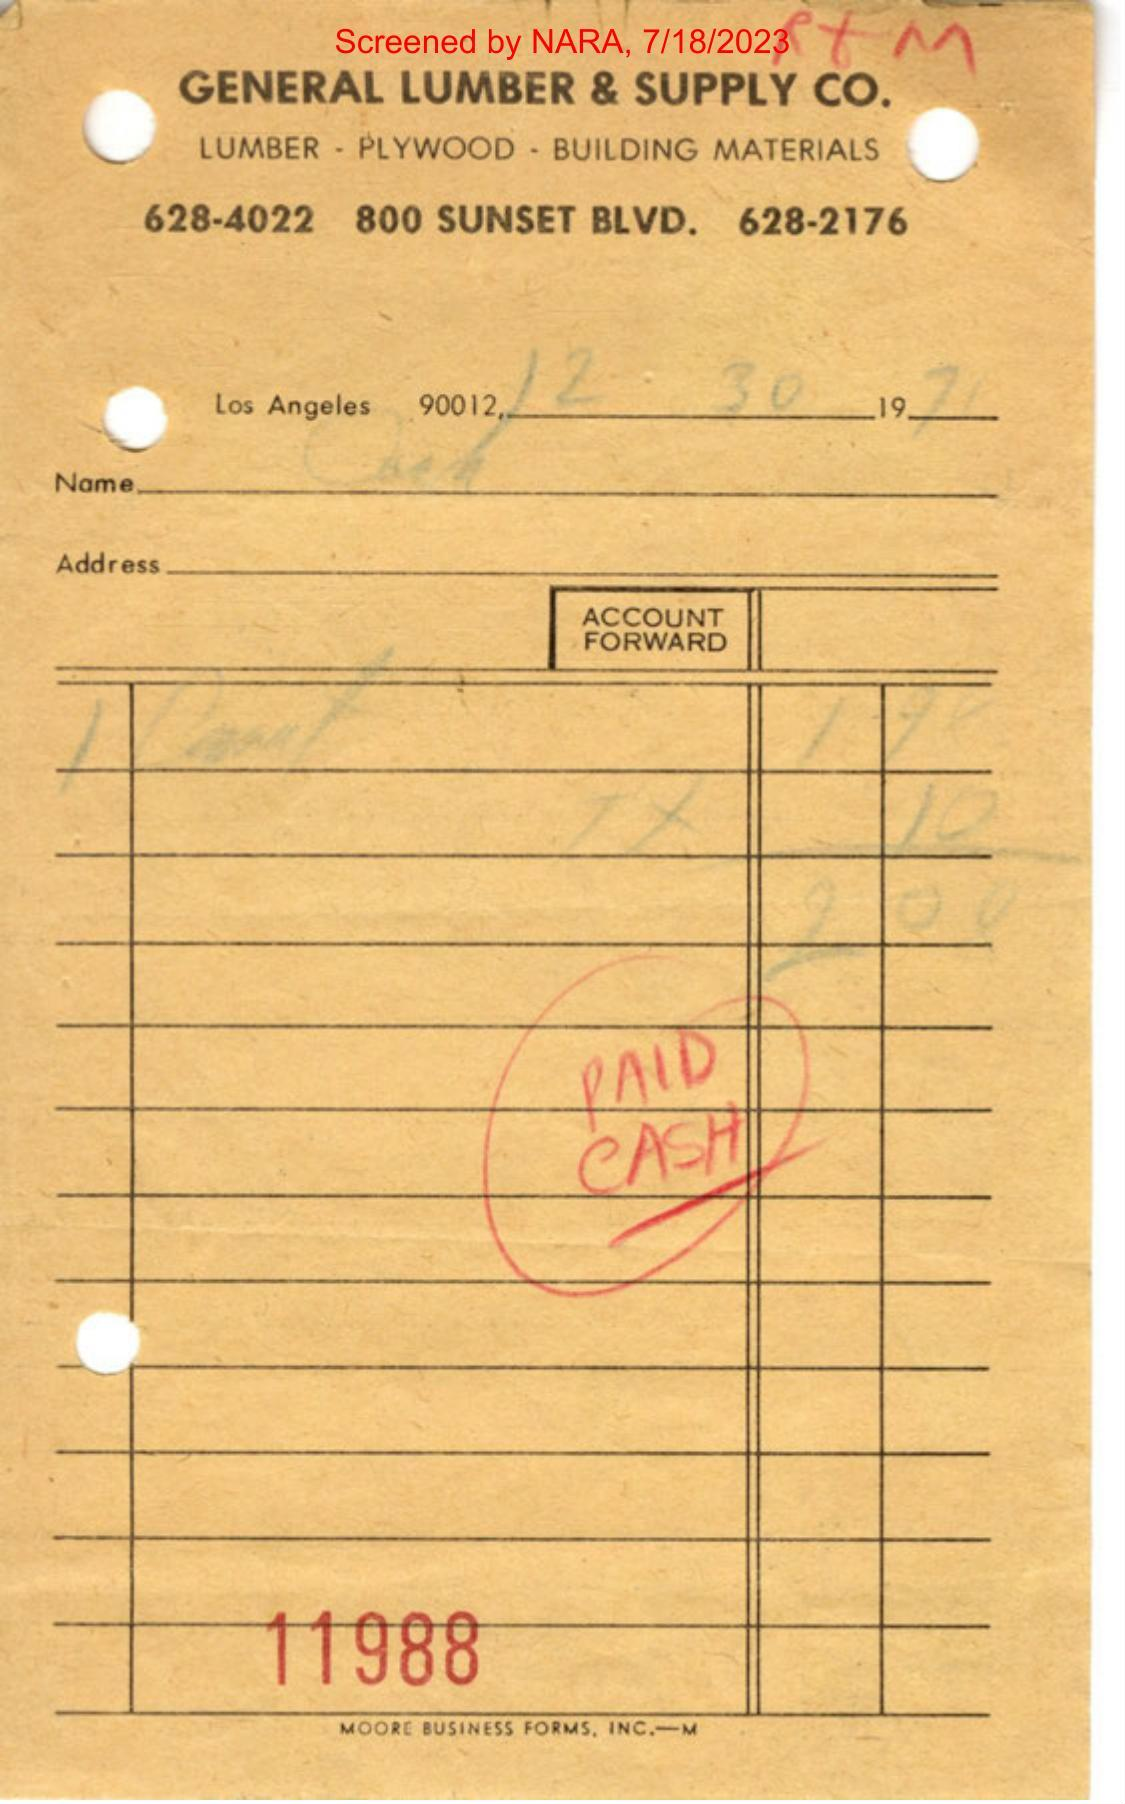 Screened by NARA, 7/18/2023
R+M
GENERAL LUMBER & SUPPLY CO.
LUMBER - PLYWOOD - BUILDING MATERIALS
628-4022 800 SUNSET BLVD. 628-2176
Los Angeles 90012, 12 30 19 71
Name Cash
Address
ACCOUNT
FORWARD
1 1 90
TX 10
2 00
PAID
CASH
11988
MOORE BUSINESS FORMS, INC.—M